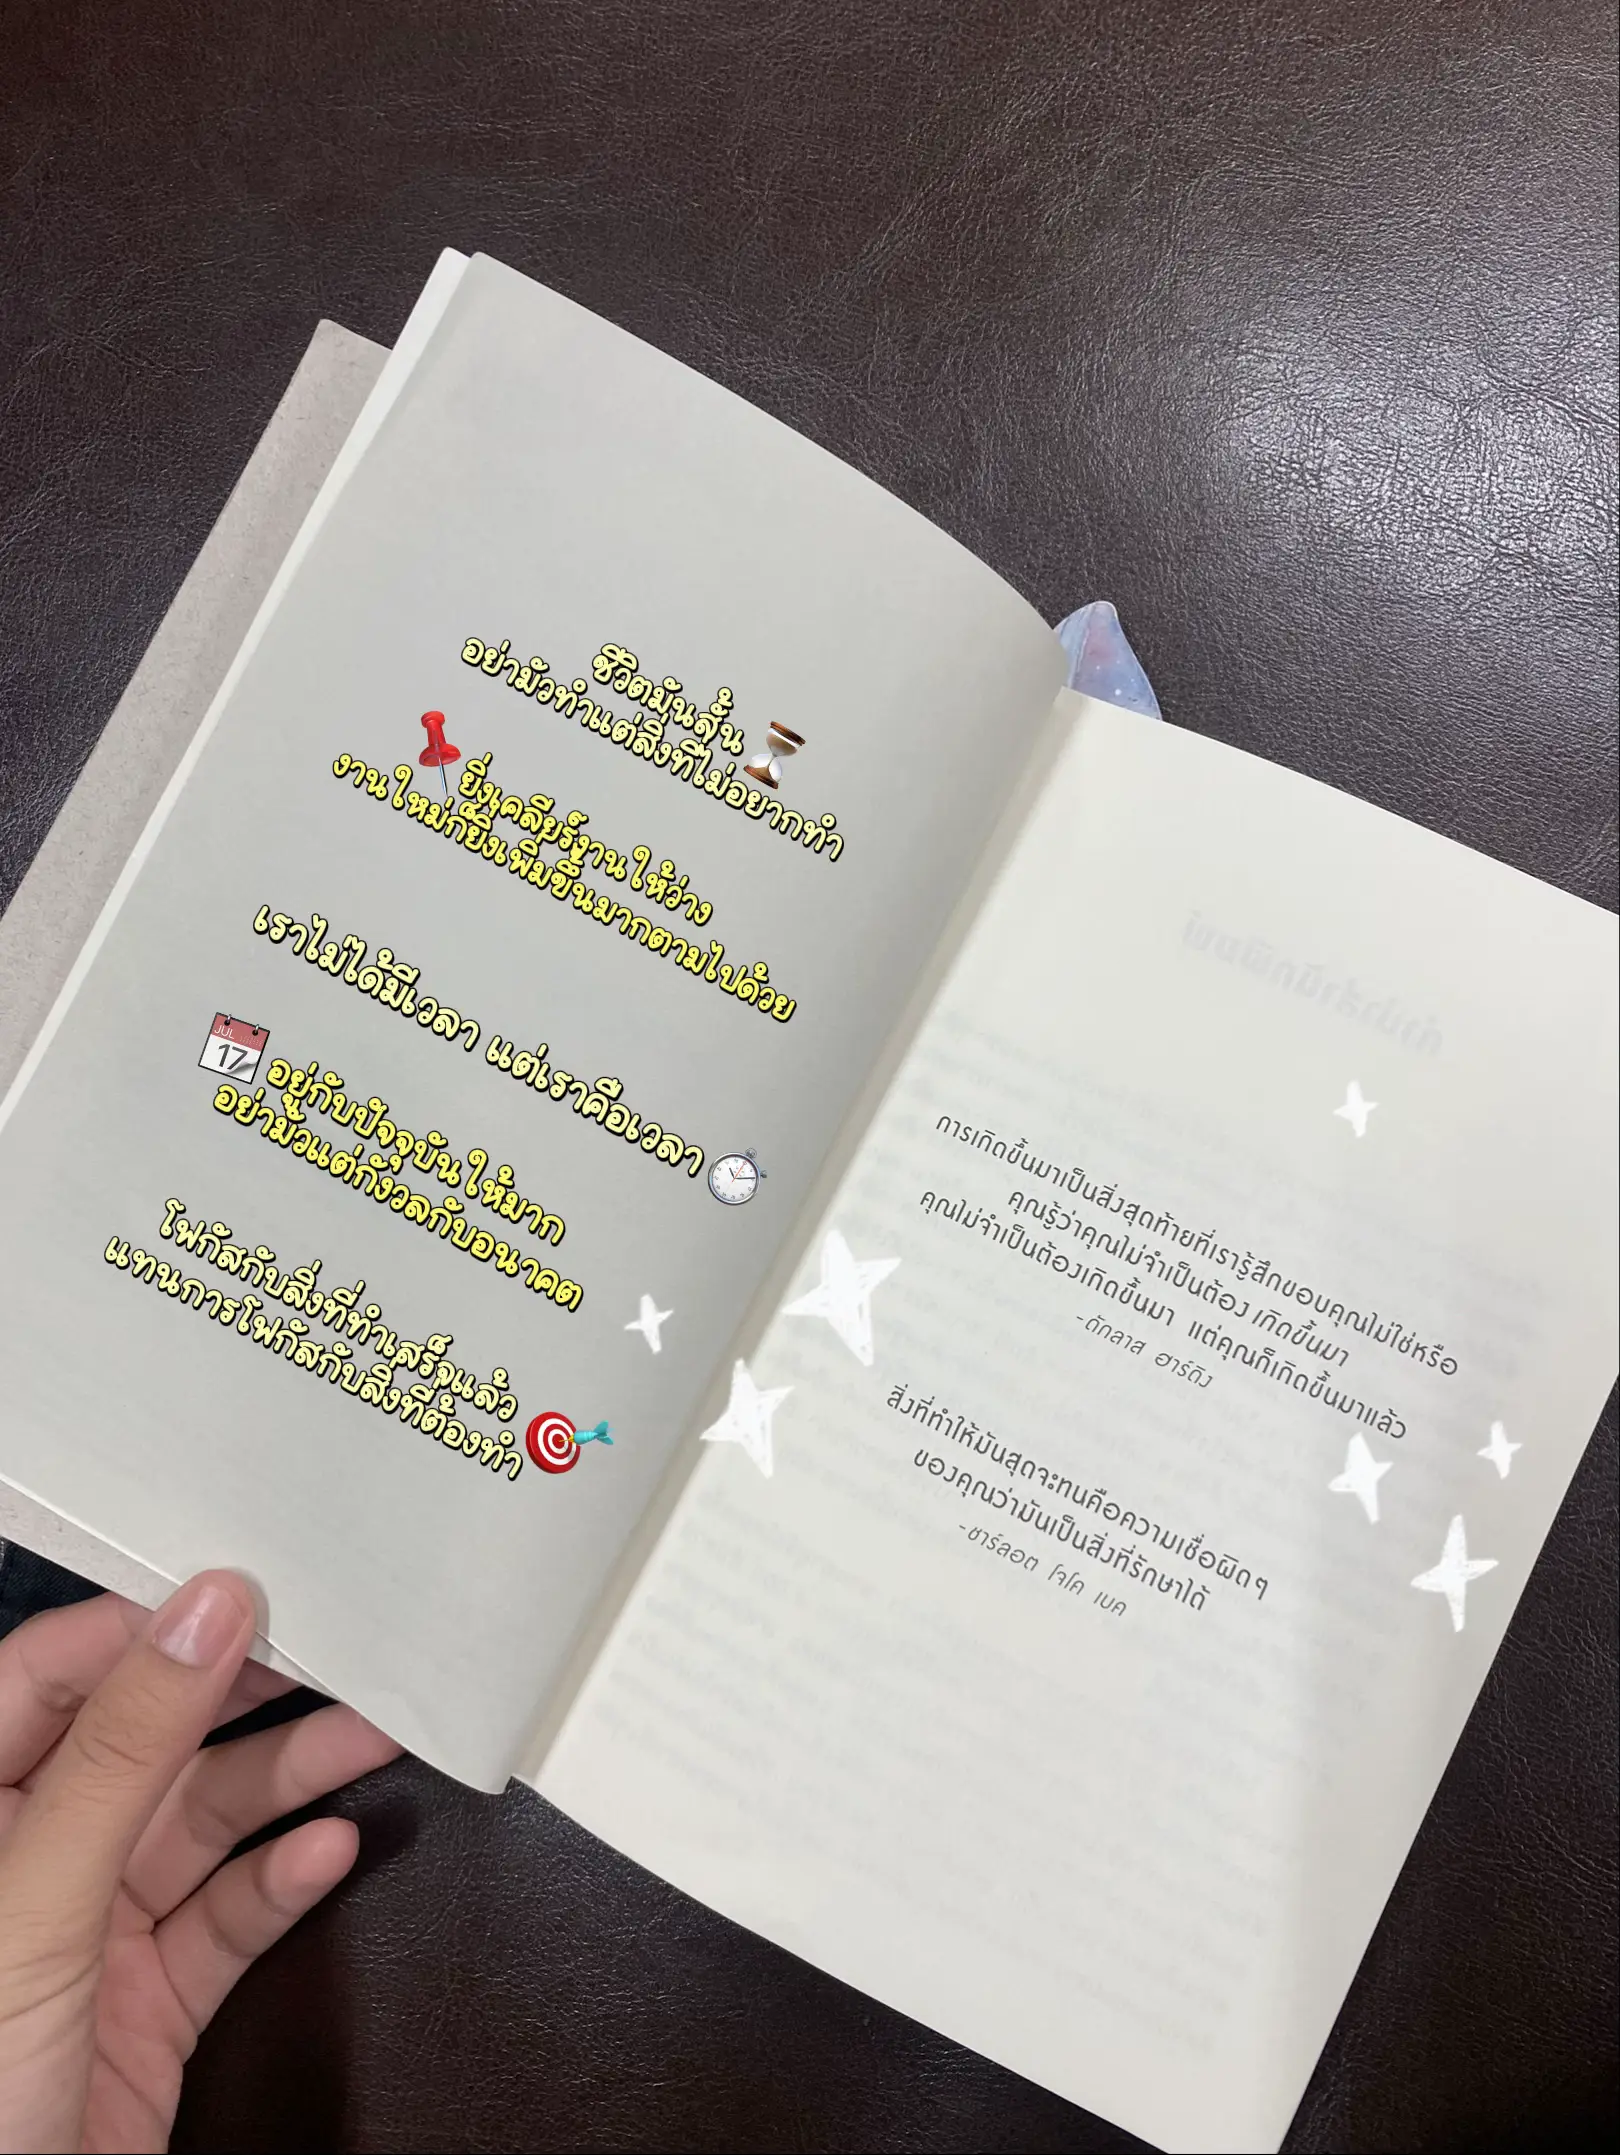 ชีวิตมันสั้น
อย่ามัวทำแต่สิ่งที่ไม่อยากทำ
ยิ่งเคลียร์งานให้ว่าง
งานใหม่ก็ยิ่งเพิ่มขึ้นมากตามไปด้วย
เราไม่ได้มีเวลา แต่เราคือเวลา
JUL
17
อยู่กับปัจจุบันให้มาก
อย่ามัวแต่กังวลกับอนาคต
โฟกัสกับสิ่งที่ทำเสร็จแล้ว
แทนการโฟกัสกับสิ่งที่ต้องทำ
การเกิดขึ้นมาเป็นสิ่งสุดท้ายที่เรารู้สึกขอบคุณไม่ใช่หรือ
คุณรู้ว่าคุณไม่จำเป็นต้อง เกิดขึ้นมา
คุณไม่จำเป็นต้องเกิดขึ้นมา แต่คุณก็เกิดขึ้นมาแล้ว
-ดักลาส ฮาร์ดิง
สิ่งที่ทำให้มันสุดจะทนคือความเชื่อผิดๆ
ของคุณว่ามันเป็นสิ่งที่รักษาได้
-ชาร์ลอต โจโค เบค